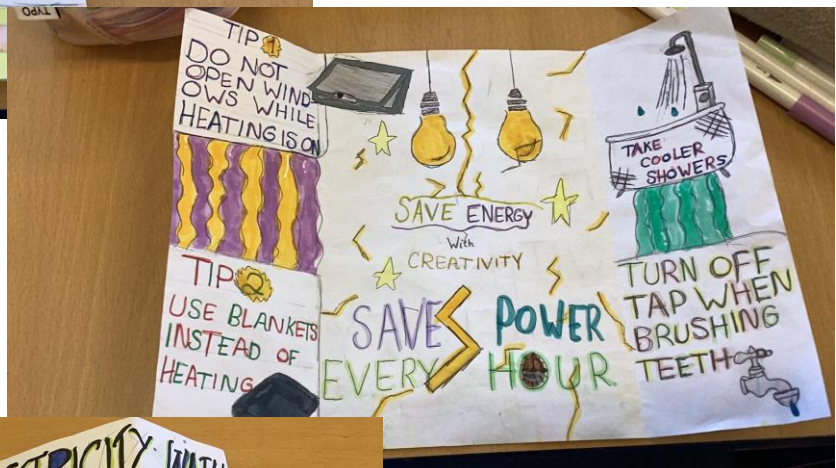 TYPO
TIP 1
DO NOT
OPEN WIND
OWS WHILE
HEATING IS ON
TIP 2
USE BLANKETS
INSTEAD OF
HEATING
SAVE ENERGY
With
CREATIVITY
SAVE POWER
EVERY HOUR
TAKE
COOLER
SHOWERS
TURN OFF
TAP WHEN
BRUSHING
TEETH